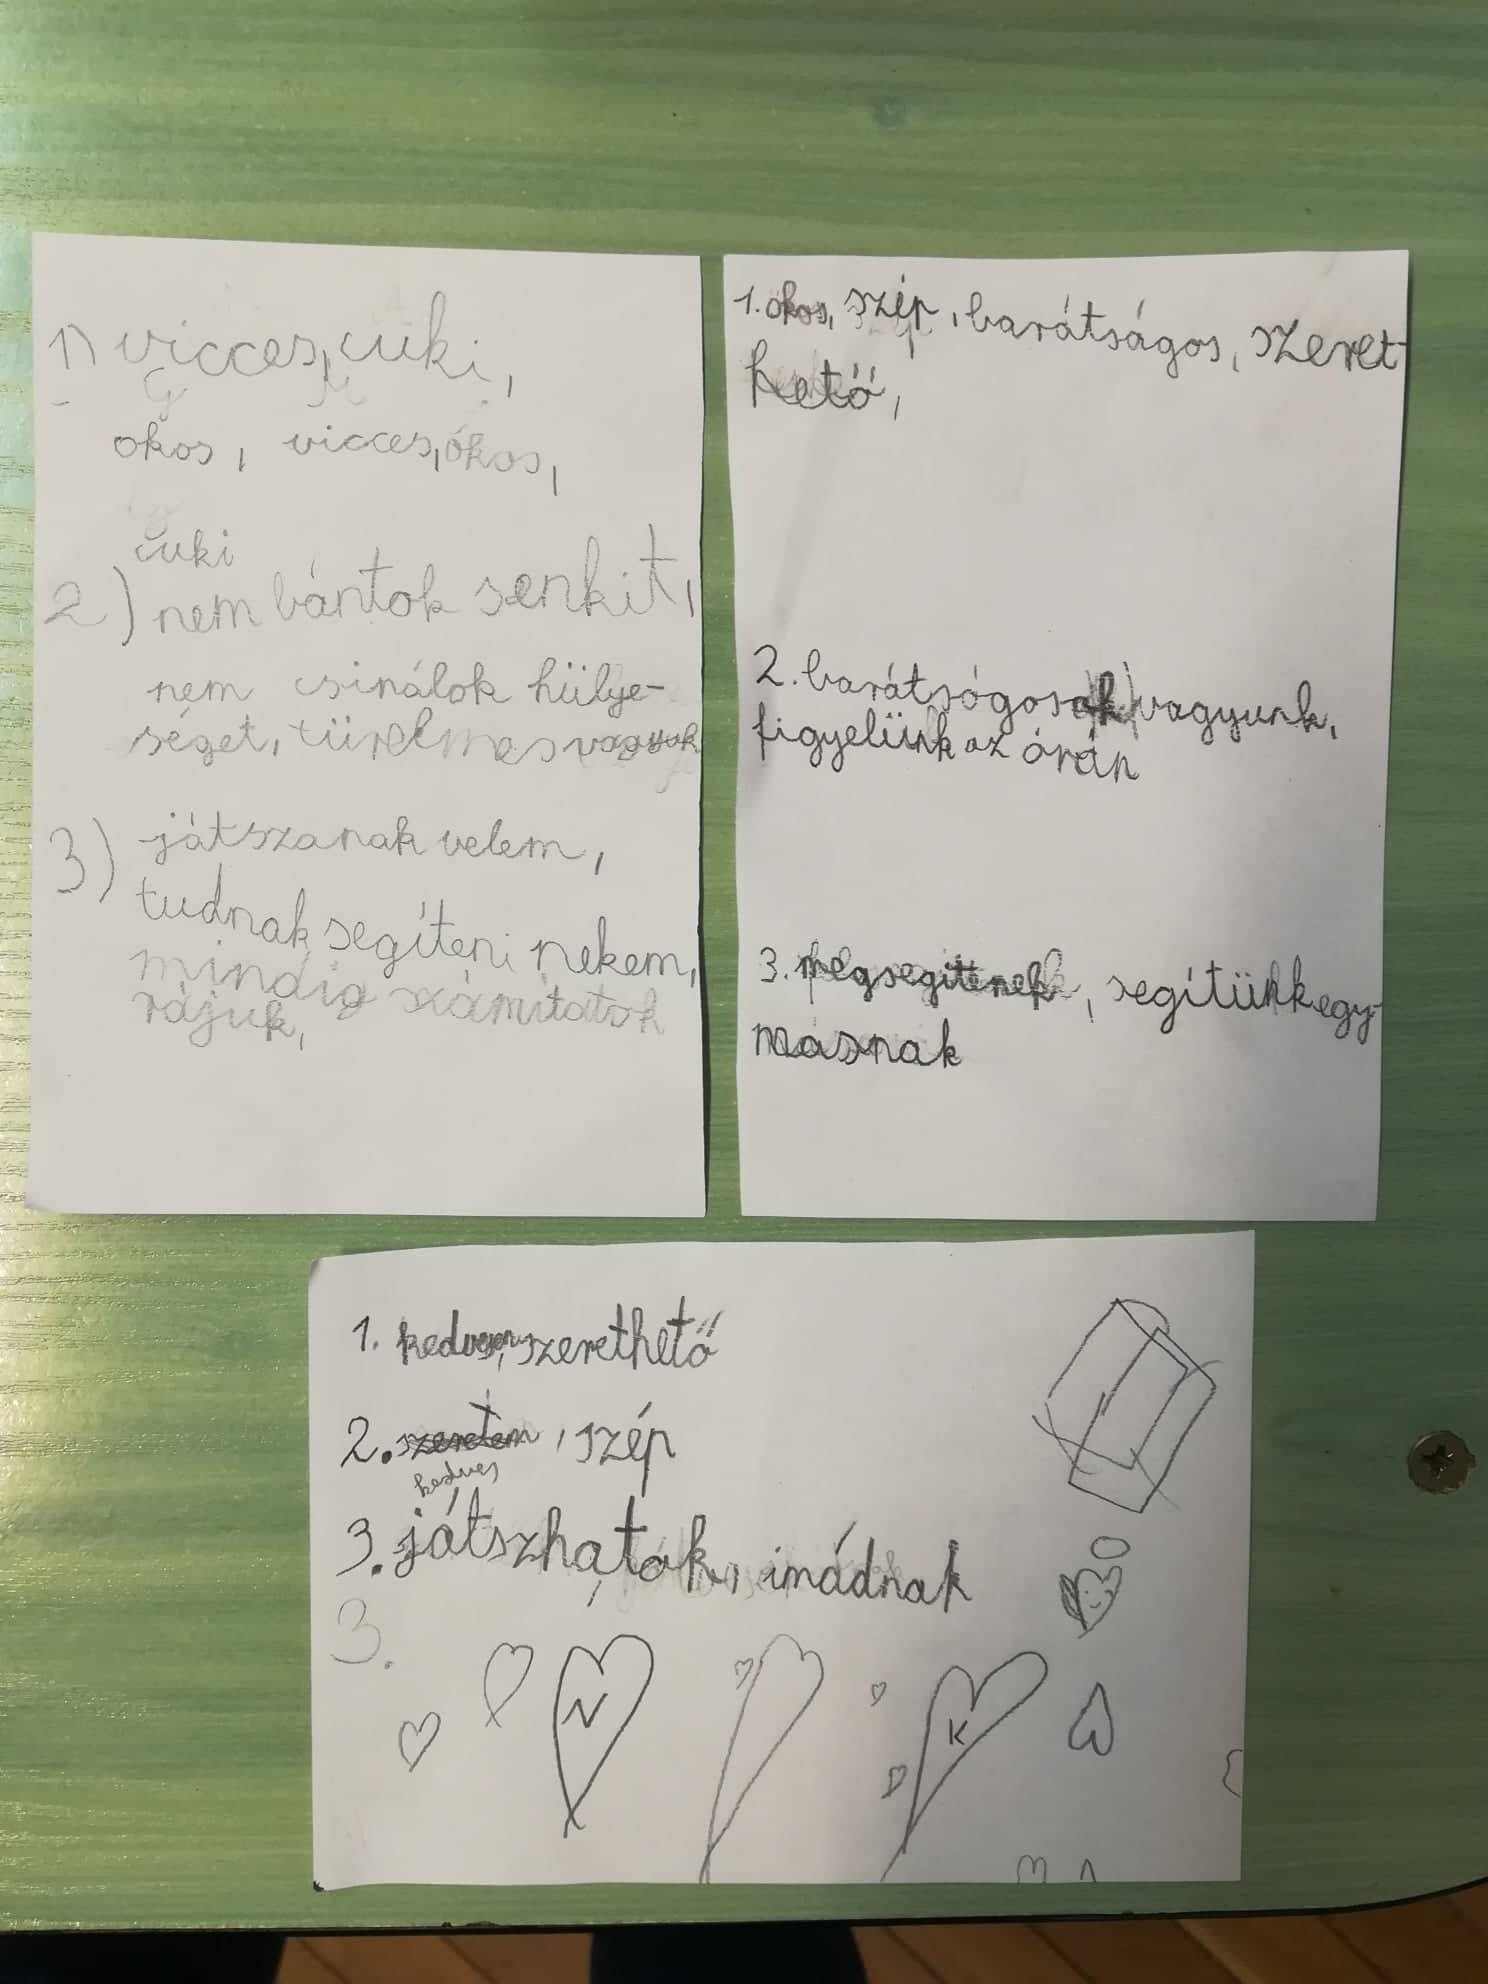 1) vicces, cuki,
okos, vicces, okos,
cuki
2) nem bántok senkit,
nem csinálok hülye-
séget, türelmes vagyok
3) játszanak velem,
tudnak segíteni nekem,
mindig számítatok
rájuk,
1. okos, szép, barátságos, szeret-
hető,
2. barátságosak vagyunk,
figyelünk az órán
3. megsegítenek, segítünk egy-
másnak
1. kedves, szerethető
2. szeretem, szép
kedves
3. játszhatok, imádnak
3.
N
K